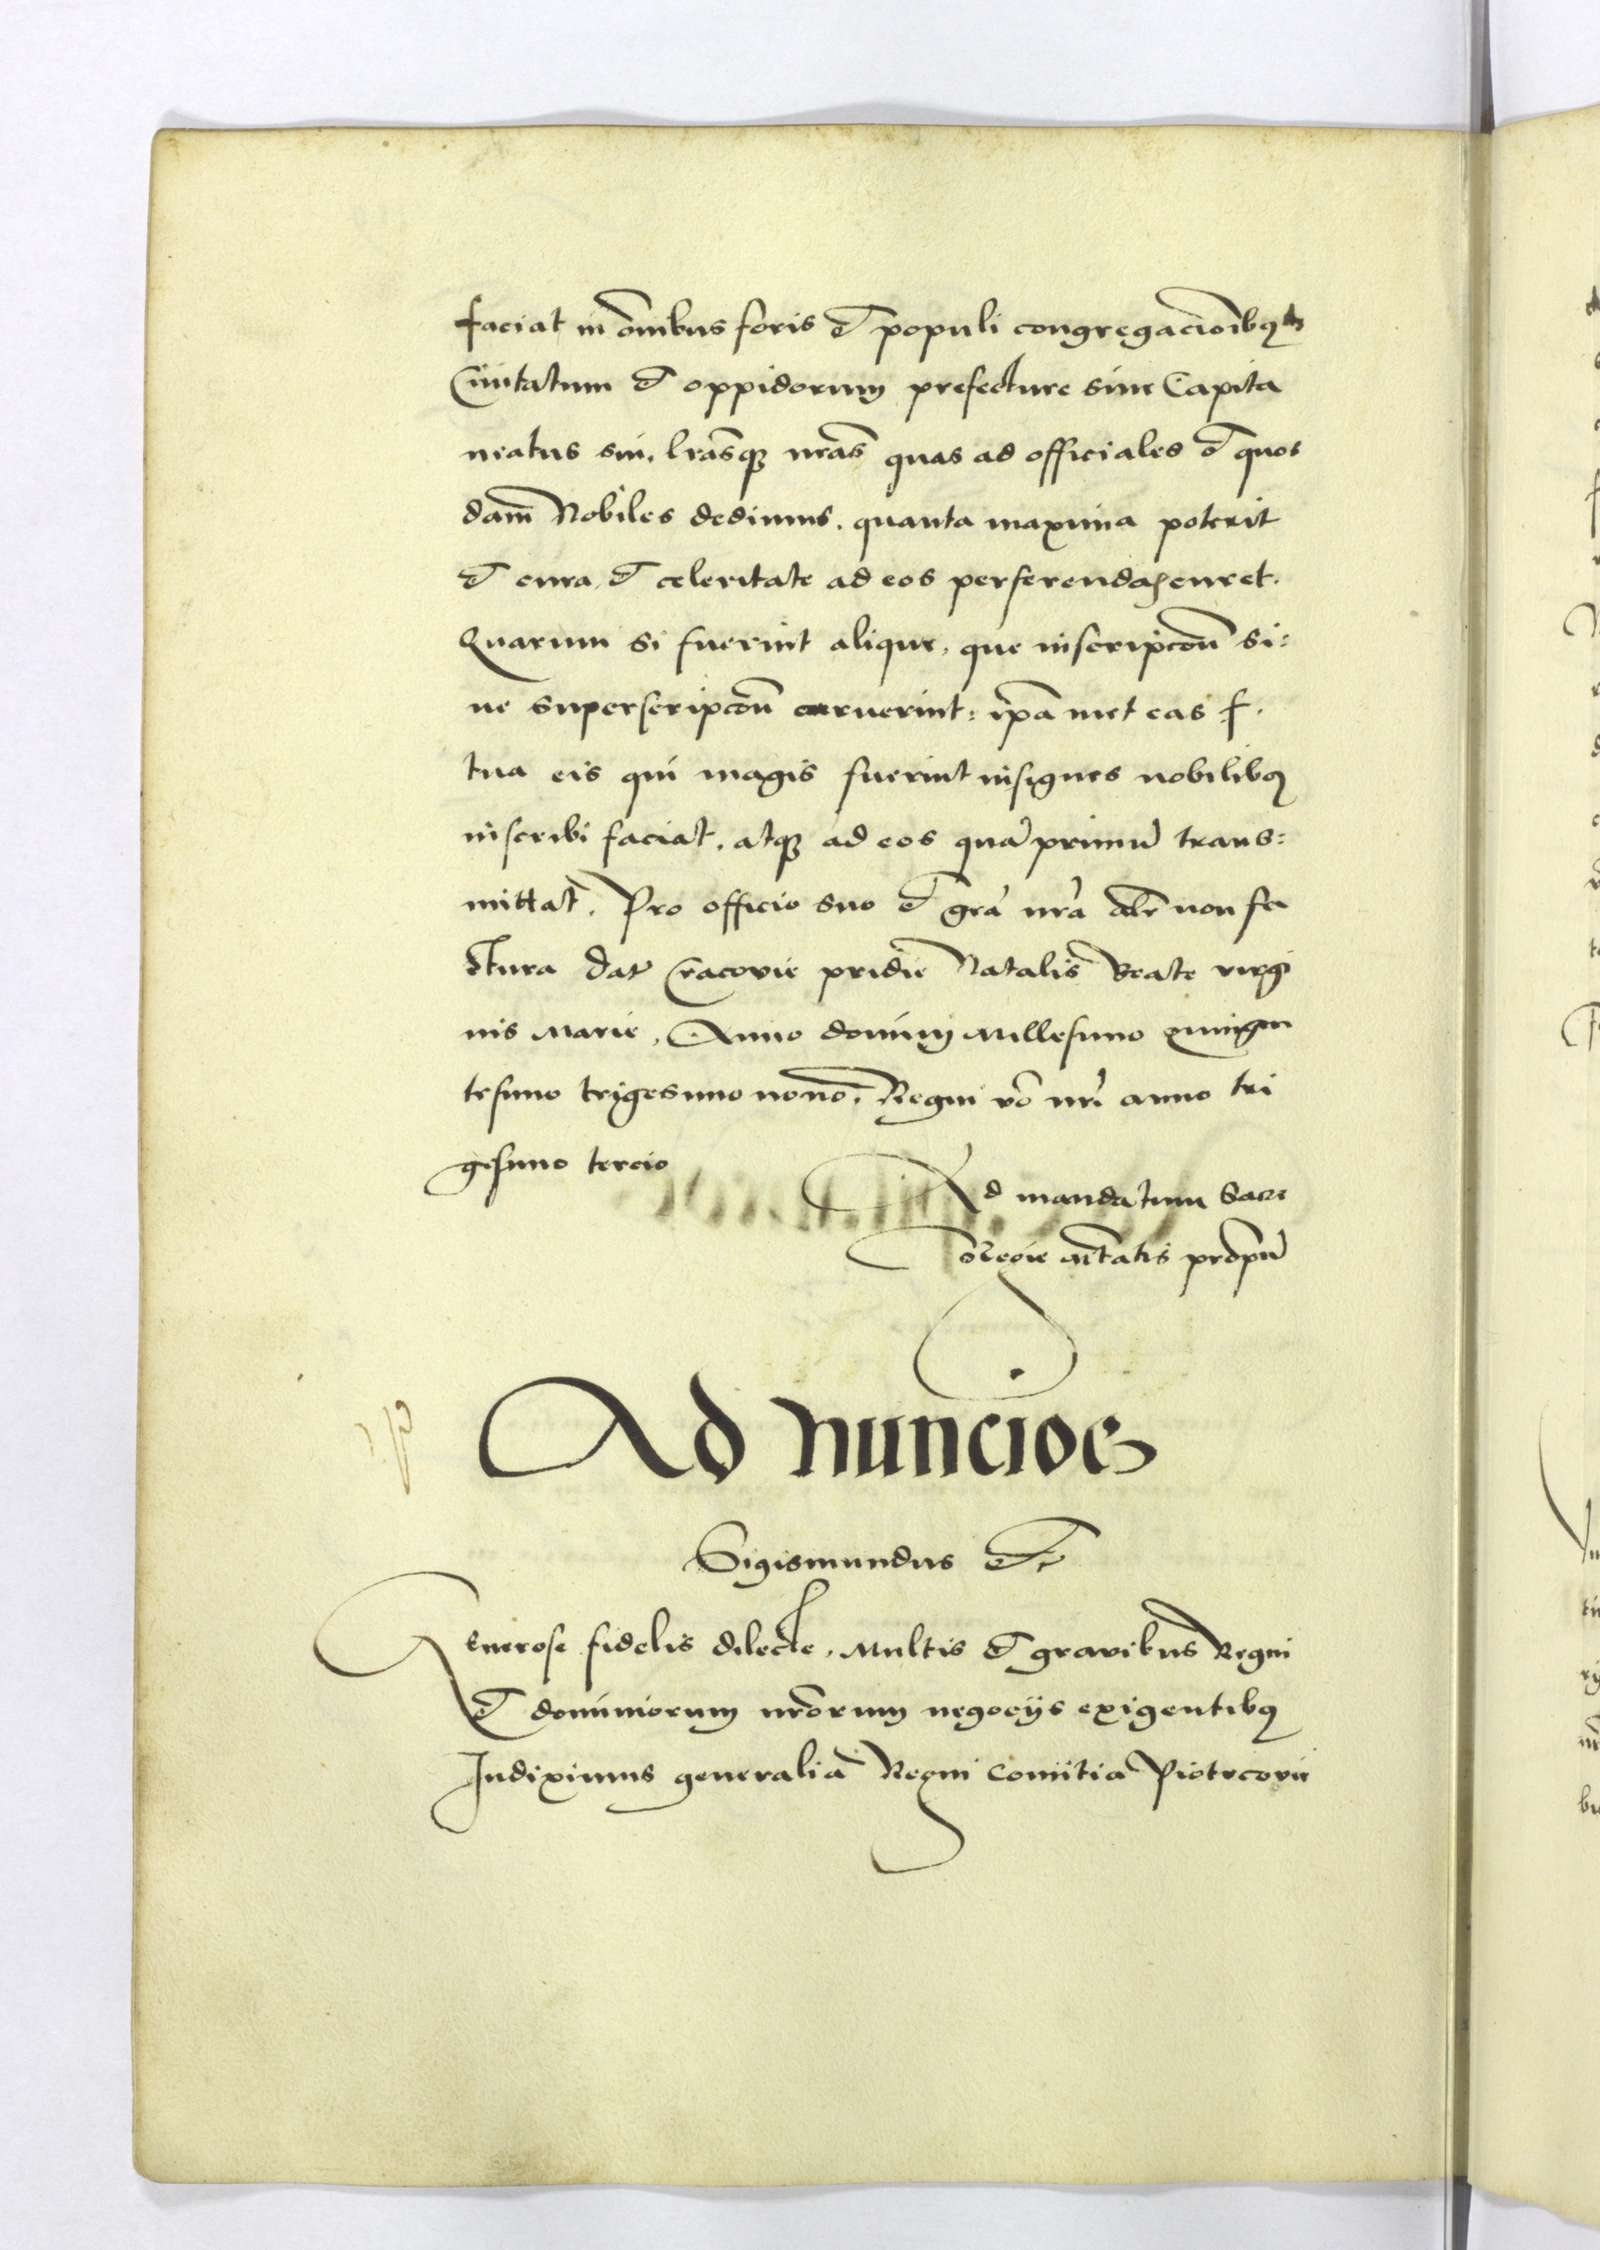 faciat in om̃ibus foris et populi congregac̃ioibq
Ciuitatum et oppidorum prefecture siue Capita
neatus sui, lrãsq3 nrãs quas ad officiales et quos
dam Nobiles dedimus, quanta maxima poterit
et cura, et celeritate ad eos perferendas curet.
Quarum si fuerint alique, que inscripcõn si:
ue superscripcõn caruerint: ip̃a met eas f.
tua eis qui magis fuerint insignes nobilibq
inscribi faciat, atq3 ad eos quã primũ trans:
mittat, Pro officio suo et grã nrã alr̃ non fa
ctura Dat̃ Cracovie pridie Natalis Beate virgi
nis Marie, Anno domini Millesimo quingen
tesimo trigesimo nono, Regni vo nri anno tri
gesimo tercio
Ad mandatum Sacre
Regie mtatis propriũ
Ad nuncios
Sigismundus etc
Generose fidelis dilecte, Multis et gravibus Regni
et dominiorum nrõrum negocijs exigentibq
Indiximus generalia Regni Comitia Piotrcovie